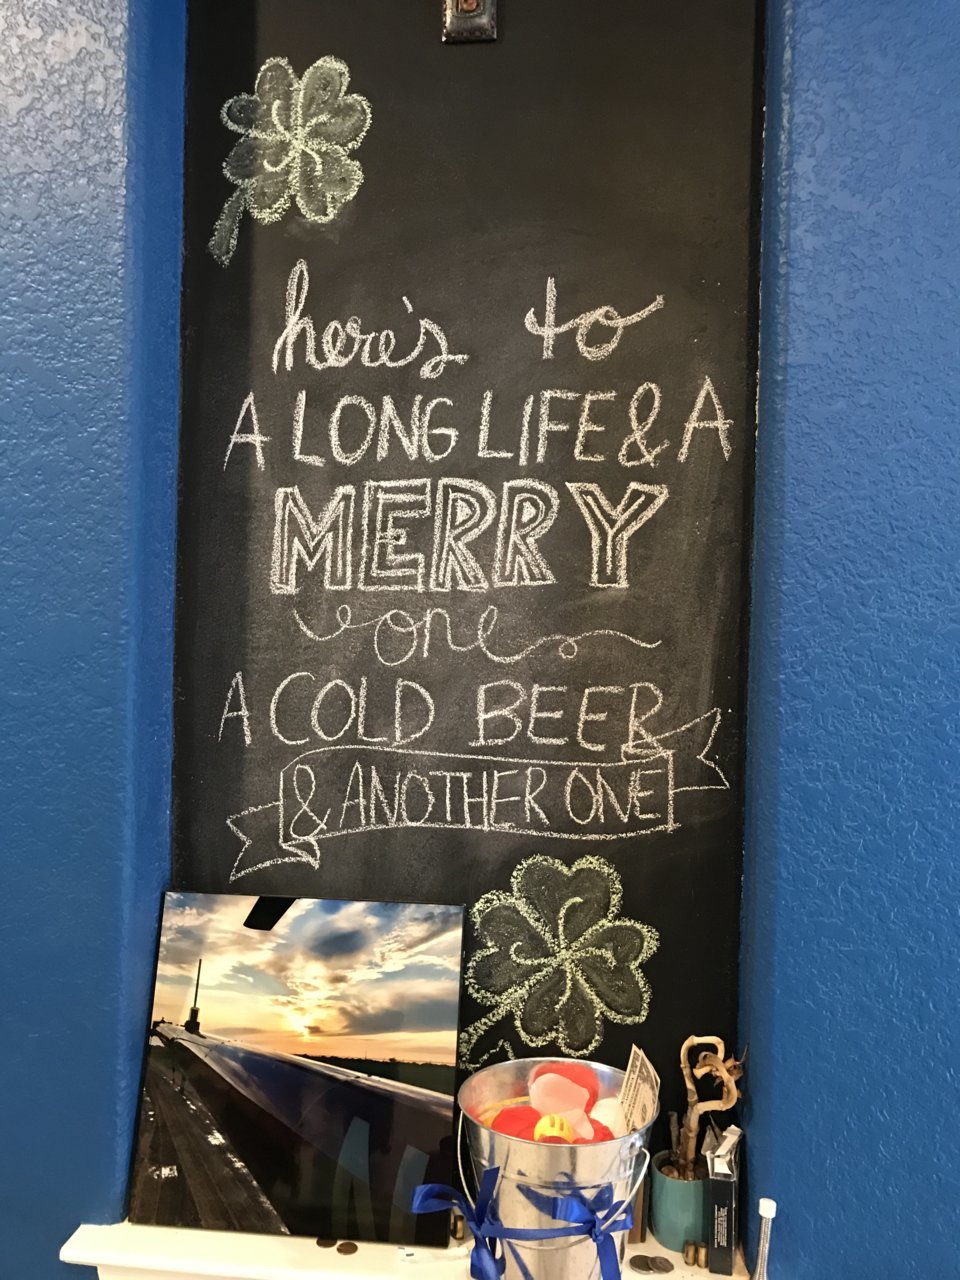 here's to
A LONG LIFE & A
MERRY
one
A COLD BEER
& ANOTHER ONE